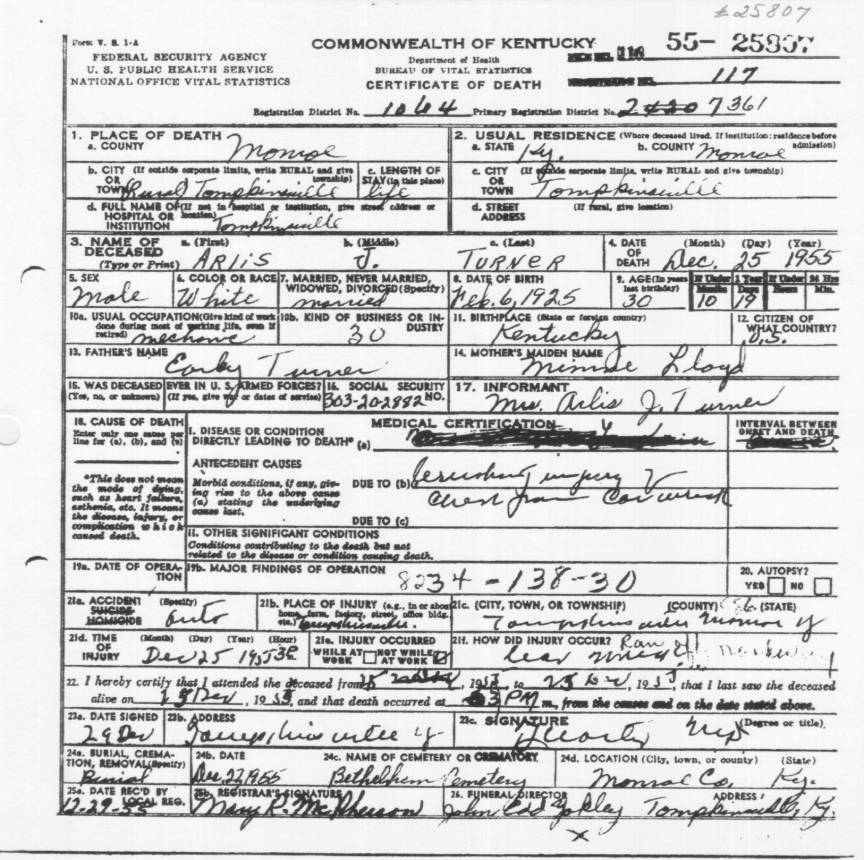 #25807
Form V. S. 1-A
COMMONWEALTH OF KENTUCKY
FILE NO. 116 55- 25807
FEDERAL SECURITY AGENCY
U. S. PUBLIC HEALTH SERVICE
NATIONAL OFFICE VITAL STATISTICS
Department of Health
BUREAU OF VITAL STATISTICS
CERTIFICATE OF DEATH
REGISTRAR'S NO. 117
Registration District No. 1064 Primary Registration District No. 2430 7361
1. PLACE OF DEATH
a. COUNTY Monroe
2. USUAL RESIDENCE (Where deceased lived. If institution: residence before admission)
a. STATE Ky. b. COUNTY Monroe
b. CITY (If outside corporate limits, write RURAL and give township)
OR TOWN Rural Tompkinsville
c. LENGTH OF STAY (in this place) life
c. CITY (If outside corporate limits, write RURAL and give township)
OR TOWN Tompkinsville
d. FULL NAME OF (If not in hospital or institution, give street address or location)
HOSPITAL OR INSTITUTION Tompkinsville
d. STREET ADDRESS (If rural, give location)
3. NAME OF DECEASED (Type or Print)
a. (First) ARLIS b. (Middle) J. c. (Last) TURNER
4. DATE OF DEATH (Month) (Day) (Year) Dec. 25 1955
5. SEX Male
6. COLOR OR RACE White
7. MARRIED, NEVER MARRIED, WIDOWED, DIVORCED (Specify) married
8. DATE OF BIRTH Feb. 6, 1925
9. AGE (In years last birthday) 30
If Under 1 Year Months 10 Days 19
If Under 24 Hrs Hours Min.
10a. USUAL OCCUPATION (Give kind of work done during most of working life, even if retired) mechanic
10b. KIND OF BUSINESS OR INDUSTRY 30
11. BIRTHPLACE (State or foreign country) Kentucky
12. CITIZEN OF WHAT COUNTRY? U.S.
13. FATHER'S NAME Early Turner
14. MOTHER'S MAIDEN NAME Minnie Lloyd
15. WAS DECEASED EVER IN U. S. ARMED FORCES? (Yes, no, or unknown) (If yes, give war or dates of service)
16. SOCIAL SECURITY NO. 303-20-2882
17. INFORMANT Mrs. Arlis J. Turner
18. CAUSE OF DEATH
Enter only one cause per line for (a), (b), and (c)
MEDICAL CERTIFICATION
INTERVAL BETWEEN ONSET AND DEATH
I. DISEASE OR CONDITION DIRECTLY LEADING TO DEATH* (a)
*This does not mean the mode of dying, such as heart failure, asthenia, etc. It means the disease, injury, or complication which caused death.
ANTECEDENT CAUSES
Morbid conditions, if any, giving rise to the above cause (a) stating the underlying cause last.
DUE TO (b) injury
chest from Car wreck
DUE TO (c)
II. OTHER SIGNIFICANT CONDITIONS
Conditions contributing to the death but not related to the disease or condition causing death.
19a. DATE OF OPERATION
19b. MAJOR FINDINGS OF OPERATION
8234-138-30
20. AUTOPSY?
YES NO
21a. ACCIDENT SUICIDE HOMICIDE (Specify) auto
21b. PLACE OF INJURY (e.g., in or about home, farm, factory, street, office bldg. etc.) Tompkinsville
21c. (CITY, TOWN, OR TOWNSHIP) (COUNTY) (STATE)
Tompkinsville Monroe Ky
21d. TIME OF INJURY (Month) (Day) (Year) (Hour) Dec 25 1955
21e. INJURY OCCURRED
WHILE AT WORK NOT WHILE AT WORK
21f. HOW DID INJURY OCCUR? Ran off
Car wreck
22. I hereby certify that I attended the deceased from 1955 to 25 Dec, 1955, that I last saw the deceased
alive on Dec, 1955, and that death occurred at 3 PM m., from the causes and on the date stated above.
23a. DATE SIGNED 29 Dec
23b. ADDRESS Tompkinsville Ky
23c. SIGNATURE (Degree or title) MD
24a. BURIAL, CREMATION, REMOVAL (Specify) Burial
24b. DATE Dec 27, 1955
24c. NAME OF CEMETERY OR CREMATORY Bethelhem Cemetery
24d. LOCATION (City, town, or county) (State) Monroe Co. Ky.
25a. DATE REC'D BY LOCAL REG. 12-29-55
25b. REGISTRAR'S SIGNATURE Mary R. McPherson
26. FUNERAL DIRECTOR ADDRESS
John Edd Yokley Tompkinsville, Ky.
X